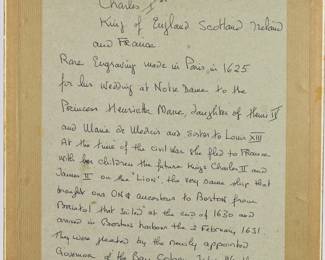 Charles Ist
King of England Scotland Ireland
and France
Rare Engraving made in Paris, in 1625
for his wedding at Notre Dame to the
Princess Henrietta Marie, daughter of Henri IV
and Marie de Medicis and Sister to Louis XIII
At the time of the civil war she fled to France
with her children the future Kings Charles II and
James II on the "Lion", the very same ship that
brought our own ancestors to Boston from
Bristol" that sailed at the end of 1630 and
arrived in Boston harbour the 2 February, 1631.
They were greeted by the newly appointed
Governor of the Bay Colony